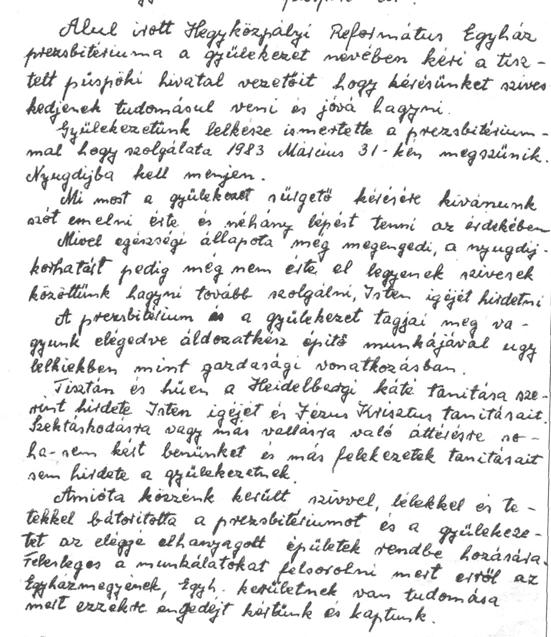 Alul irott Hegyközpályi Református Egyház
prezsbitériuma a gyülekezet nevében kéri a tisz-
telt püspöki hivatal vezetőit hogy kérésünket szives
kedjenek tudomásul venni és jóvá hagyni.
Gyülekezetünk lelkésze ismertette a prezsbitérium-
mal hogy szolgálata 1983 Március 31-kén megszünik.
Nyugdijba kell menjen.
Mi most a gyülekezet sürgető kérésére kivánunk
szót emelni érte és néhány lépést tenni az érdekében
Mivel egészségi állapota még megengedi, a nyugdij-
korhatárt pedig még nem érte el legyenek szivesek
közöttünk hagyni tovább szolgálni, Isten igéjét hirdetni
A prezsbitérium és a gyülekezet tagjai meg va-
gyunk elégedve áldozatkész épitő munkájával ugy
lelkiekben mint gazdasági vonatkozásban.
Tisztán és hüen a Heidelbergi káté tanitása sze-
rint hirdete Isten igéjét és Jézus Krisztus tanitásait.
Szektáskodásra vagy más vallásra való áttérésre so-
ha-sem kért benünket és más felekezetek tanitásait
sem hirdete a gyülekezetnek.
Amióta közzénk került szivvel, lélekkel és te-
tekkel bátoritotta a prezsbitériumot és a gyülekeze-
tet az eléggé elhanyagott épületek rendbe hozására.
Felesleges a munkálatokat felsorolni mert erről az
Egyházmegyének, Egyh. kerületnek van tudomása
mert ezzekre engedéjt kértünk és kaptunk.